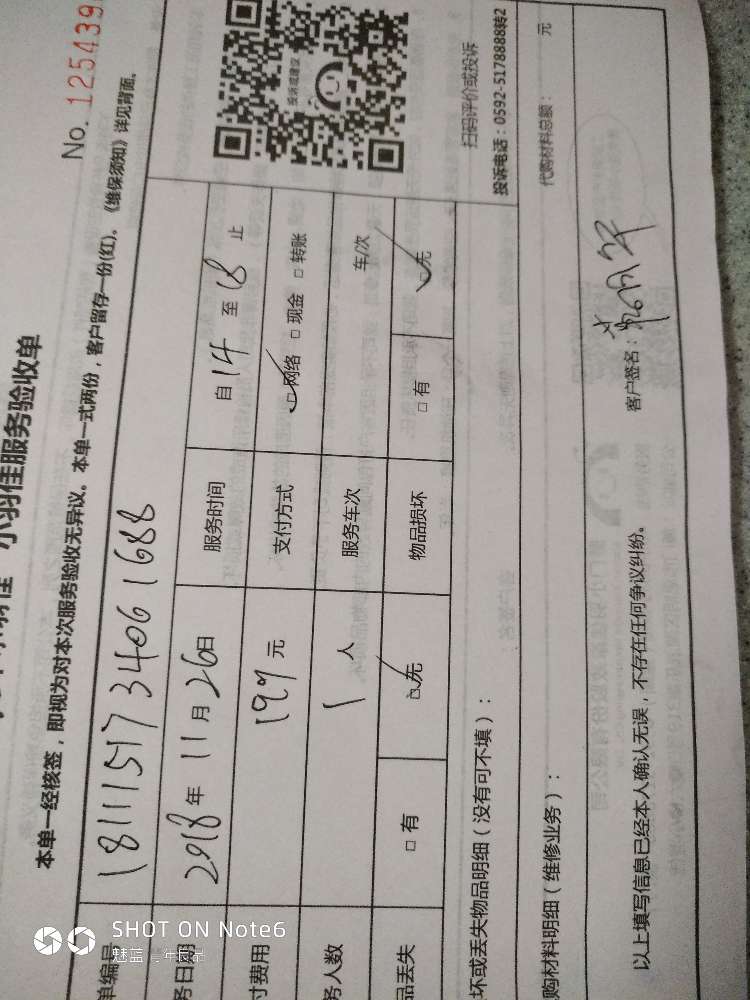 No. 125439
小羽佳服务验收单
本单一经核签，即视为对本次服务验收无异议。本单一式两份，客户留存一份(红)。《维保须知》详见背面。
单编号 1811151734061688
务日期 2018年11月26日 服务时间 自14至18止
付费用 199元 支付方式 □网络 □现金 □转账
务人数 1人 服务车次 车/次
品丢失 □有 □无 物品损坏 □有 □无
投诉或建议
扫码评价或投诉
投诉电话：0592-5178888转2
坏或丢失物品明细（没有可不填）：
购材料明细（维修业务）： 代购材料总额： 元
以上填写信息已经本人确认无误，不存在任何争议纠纷。 客户签名：
SHOT ON Note6
魅蓝